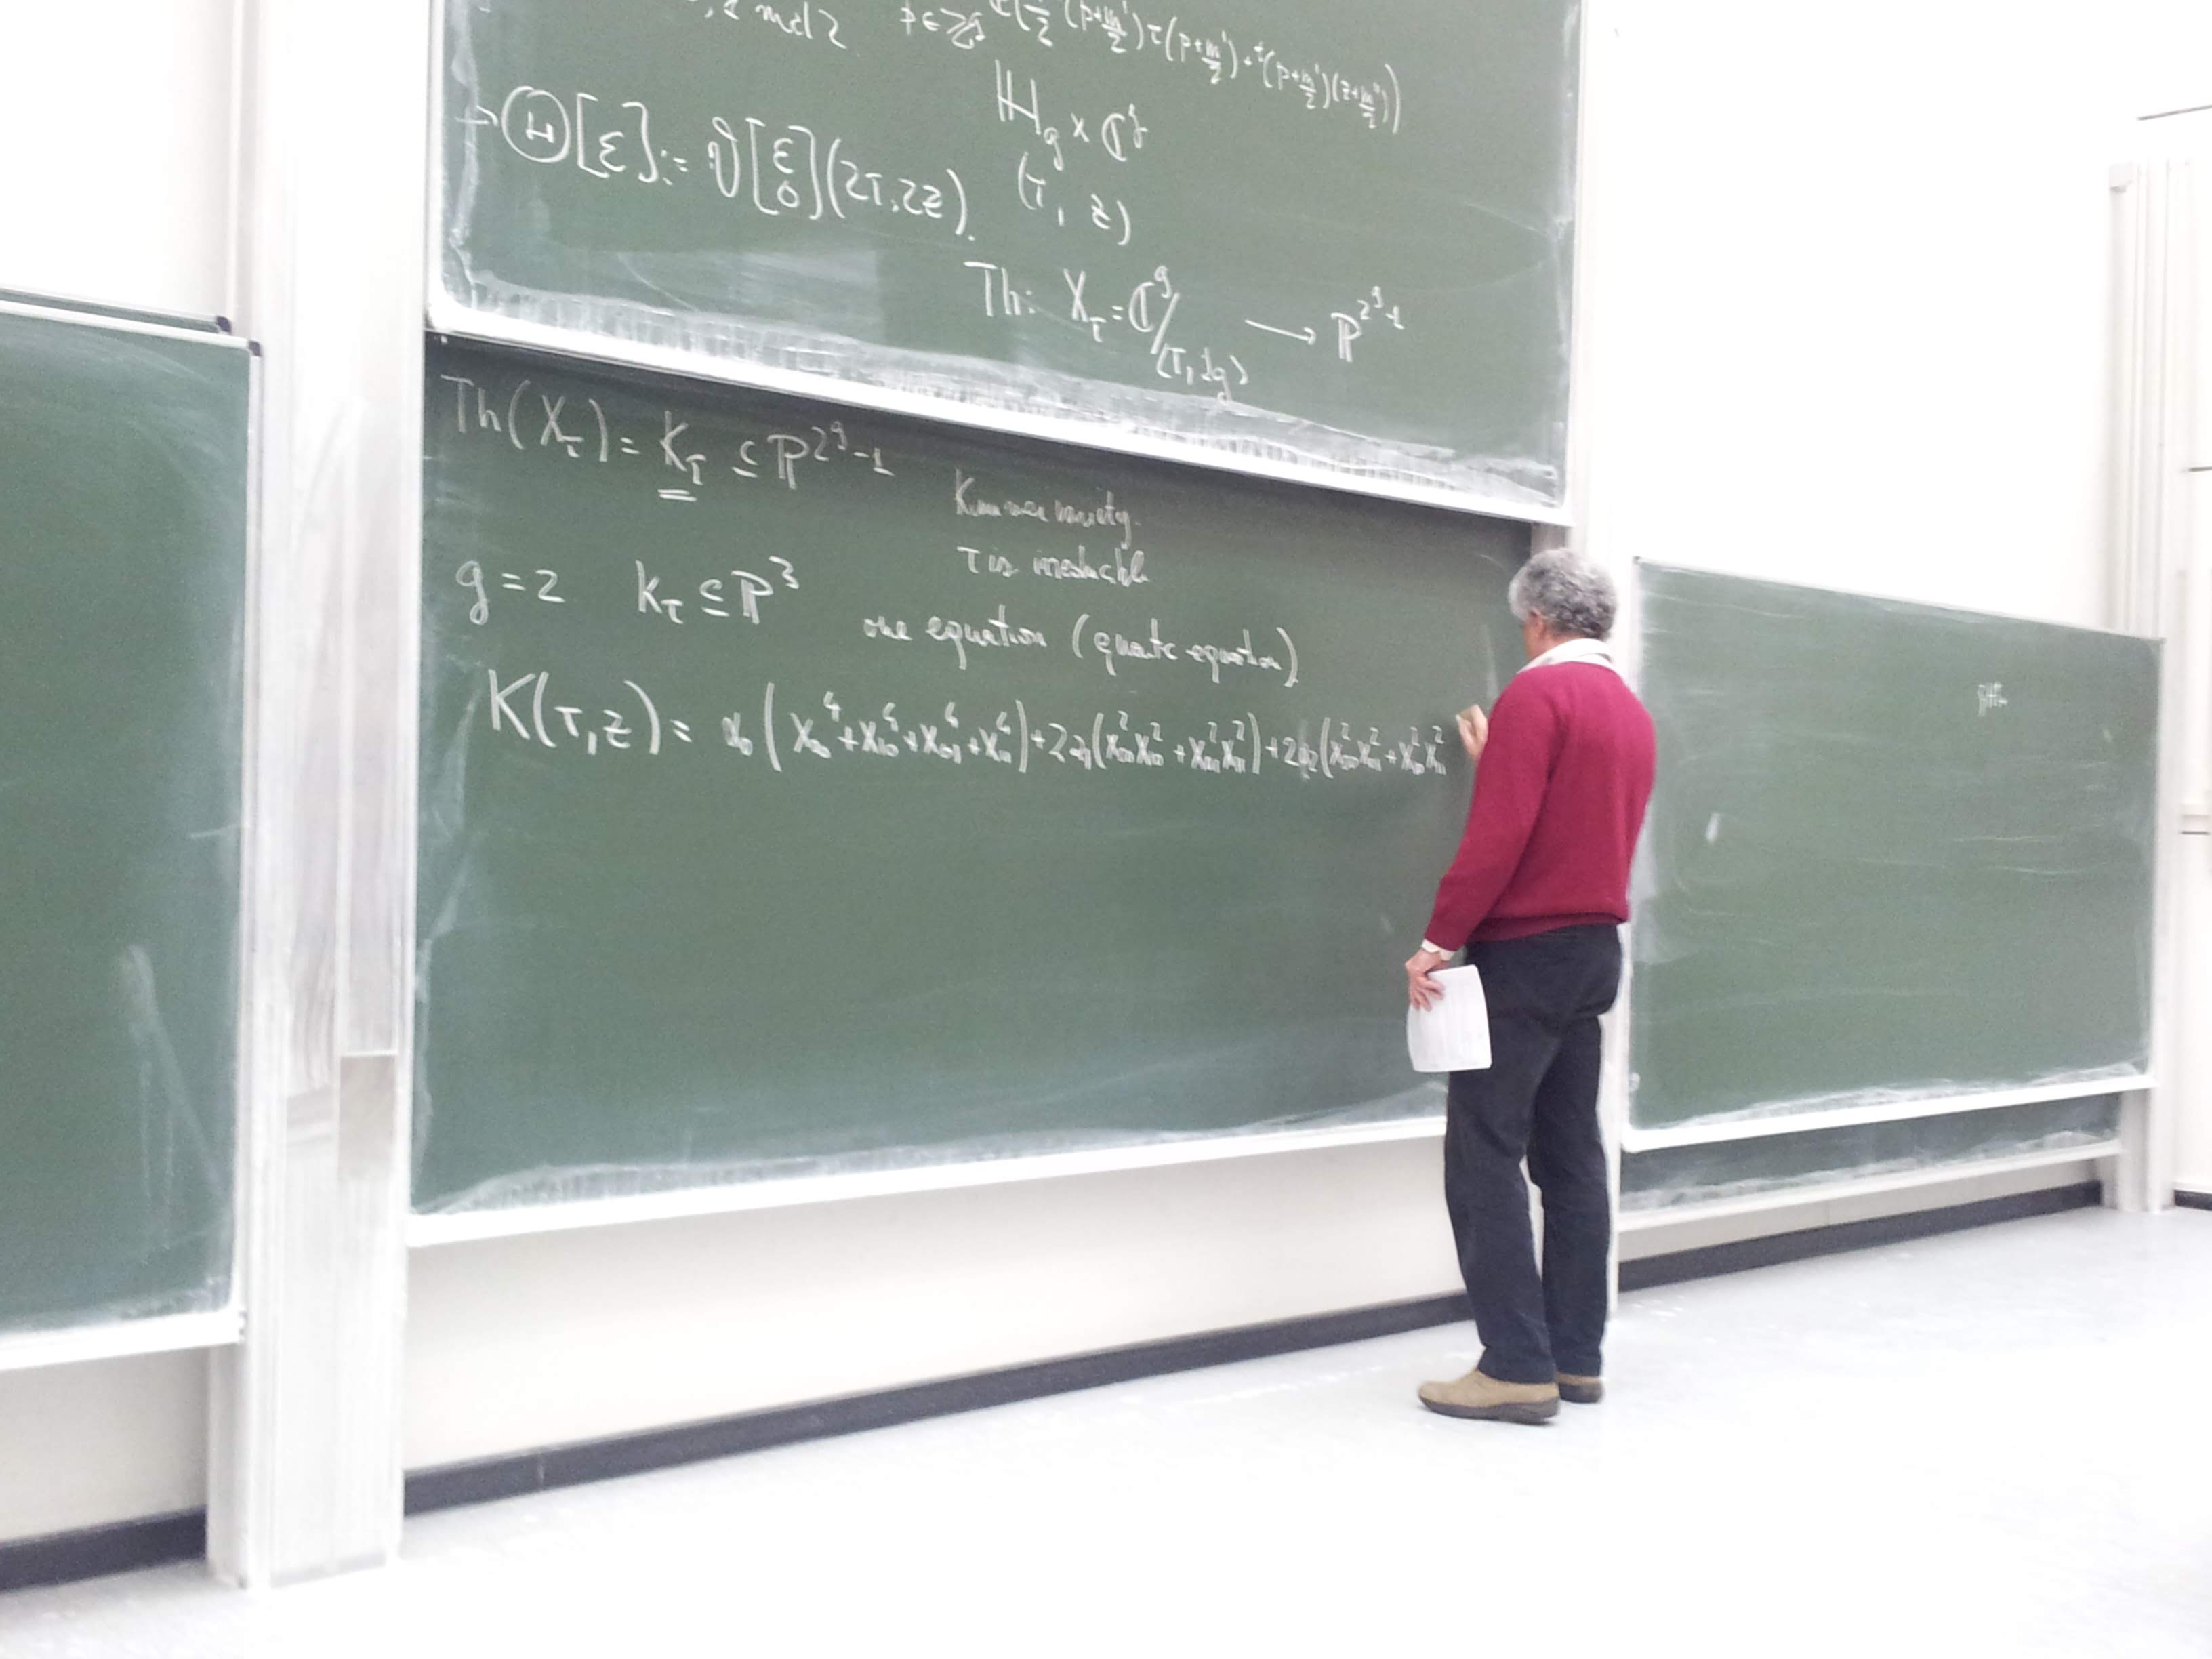 mod 2 p∈ℤ^g (p+m'/2)τ(p+m'/2)+ᵗ(p+m'/2)(z+m''/2))
→ Θ[ε]:= ϑ[ε 0](2τ,2z). ℍ_g × ℂ^g
(τ, z)
Th: X_τ=ℂ^g/⟨τ,1_g⟩ → ℙ^{2^g-1}
Th(X_τ)= K_τ ⊆ ℙ^{2^g-1} Kummer variety.
τ is irreducible
g=2 K_τ ⊆ ℙ^3
one equation (quartic equation)
K(τ,z)= α_0(X_00^4+X_10^4+X_01^4+X_11^4)+2α_1(X_00^2X_10^2+X_01^2X_11^2)+2α_2(X_00^2X_01^2+X_10^2X_11^2